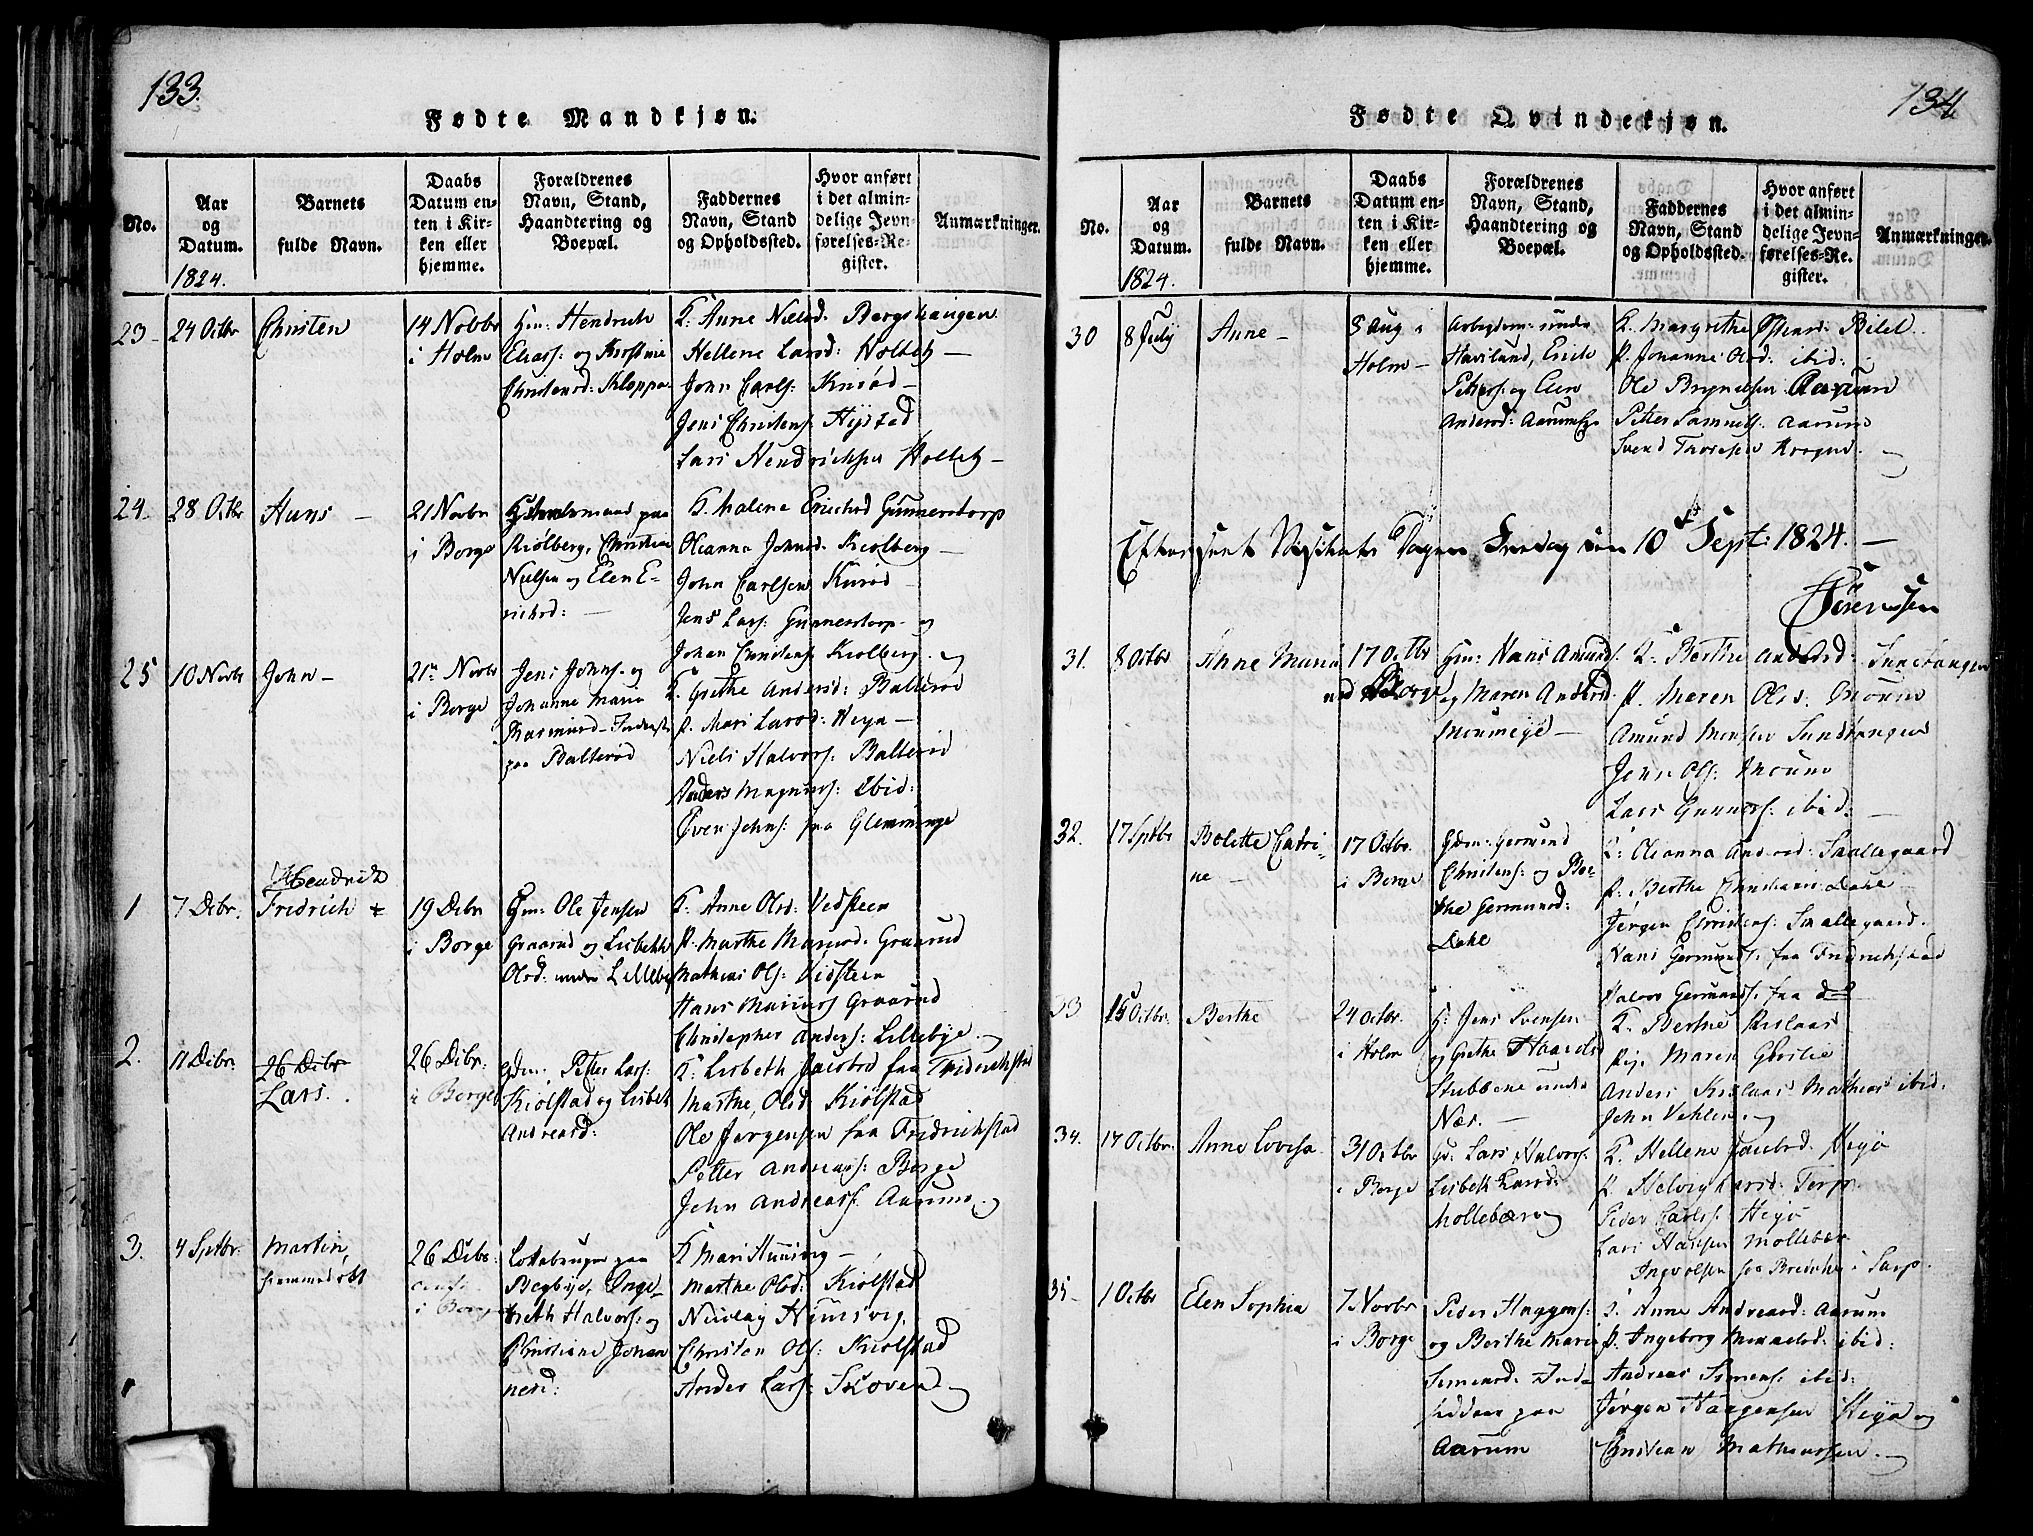 133.
Fødte Mandkjøn.
No.
Aar og Datum.
Barnets fulde Navn.
Daabs Datum enten i Kirken eller hjemme.
Forældrenes Navn, Stand, Haandtering og Boepæl.
Faddernes Navn, Stand og Opholdssted.
Hvor anført i det almindelige Jevnførelses-Register.
Anmærkninger.
1824.
23 - 24 Octbr Christen
14 Novbr
i Holm
Hm: Hendrich
Eliass: og Kirstine
Christensd: Kloppe
F: Anne Nielsd: Bergshaugen
Hellene Larsd: Holtet -
John Carls: Knrød -
Jens Christens: Hystad
Lars Hendrichsen Holtet -
24. 28 Octbr Hans -
21 Novbr
i Borge
paa
Kiølberg, Christian
Nielsen og Elen E-
richsd: -
F. Malene Erichsd Gunnerstorp
Oleanna Johnsd. Kiolberg -
John Carlsen Knrød -
Jens Lars: Gunnerstorp - og
Johan Christens Kiolberg.
25 10 Novbr John -
21de Novbr
i Borge
Jens Johns: og
Johanne Maria
Rasmusd -
paa Balterød
F. Grethe Andersd: Balterød
P. Mari Larsd: Heya -
Niels Halvors: Balterød
Anders Magnuss: ibid:
Even Johns: fra Glemminge
1 7 Debr. Hendrich
Fredrich
19 Debr
i Borge
Hm: Ole Jensen
Graarud og Lisbeth
Olsd: under Lillebye
F. Anne Olsd: Vedsteen
P. Marthe Mariusd: Graarud
Mathias Ols: Vidsteen
Hans Mariuss Graarud
Christopher Anders: Lillebye.
2. 11 Debr. 26 Debr
Lars.
26 Debr:
i Borge
Gdm: Petter Lars:
Kiølstad og Lisbet
Andreasd:
F. Lisbeth Jacobsd fra Fridrichstad
Marthe, Olsd Kiølstad
Ole Jørgensen fra Fredrichstad
Petter Andreass: Borge
John Andreass: Aarum. og
3. 4 Sptbr. Martin,
hiemmedøbt
26 Debr:
i Borge
paa
Begbye, Inge-
breth Halvors: og
Christiane Johan
nesd:
F Mari Hunsvig -
Marthe Olsd: Kiølstad
Nicolay Hunsvig,
Christen Ols: Kiolstad
Anders Lars: Skoven og
134
Fødte Qvindekjøn.
No.
Aar og Datum.
Barnets fulde Navn.
Daabs Datum enten i Kirken eller hjemme.
Forældrenes Navn, Stand, Haandtering og Boepæl.
Faddernes Navn, Stand og Opholdssted.
Hvor anført i det almindelige Jevnførelses-Register.
Anmærkninger.
1824.
30 8 July Anne -
8 Aug i
Holm -
Arbeydsm: under
Havslund, Erich
Petters: og Elen
Andersd: Aarum
F. Margrethe
P. Johanne Olsd: ibid:
Ole Brynelsen Aarum
Petter Samuels. Aarum
Svend Thoresen Krogen.
Efterseet Visitats Dagen Fredag den 10de Sept: 1824. -
Sørenssen
31. 8 Octbr Anne Maria
17 Octbr
ved Borge
Hm: Hans Amunds.
og Maren Andersd
F. Berthe Andersd: Sundtangen
P. Maren Ols: Moum
Amund Monsen Sundtangen
John Ols: Moum
Lars Gunders: ibid:
32. 17 Sptbr Bolette Catri-
ne -
17 Octbr.
i Borge
Gdm: Germund
Christens: og Ber-
the Germunsd:
Dahle
F: Olianna Andersd: Smallegaard
P: Berthe Christians: Dahle
Jørgen Christens: Smallegaard.
Hans Germunds. fra Fridrichstad
Halvor Germunds. fra do
33 15 Octbr. Berthe
24 Octbr.
i Holm
H: Jens Svensen
og Grethe Haagensd
Stubbene under
Nær. -
F. Berthe Kislaas
Pig. Maren Gøslie
Anders Kislaas Mathias ibid:
John Vehlen. og
34. 17 Octbr. Anne Lovisa.
31 Octbr
i Borge
Gd: Lars Halvors:
Lisbeth Larsd:
Mollebær og
F. Hellene Jacobsd. Heyø
P. Helvig Larsd: Torp.
Peder Carls: Heyø
Lars Hansen Mollebær
35 - 1 Octbr Elen Sophia
7 Novbr
i Borge
Peder Haagens:
og Berthe Marie
Simensd: Ind-
sidder paa
Aarum
F. Anne Andreasd: Aarum
P. Ingeborg ibid:
Andreas Simens: ibid:
Jørgen Haagensen Heyø og
Christian Mathiassen. -